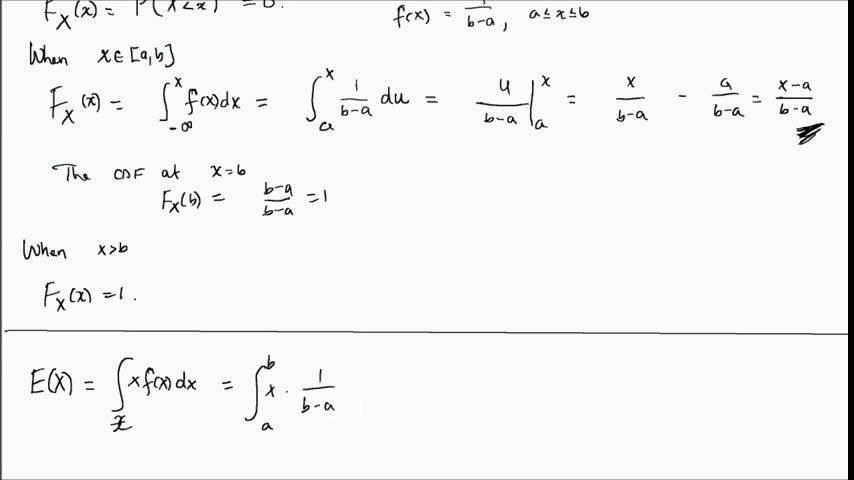 F_X(x) = P(X<x) = 0.
f(x) = 1/(b-a), a≤x≤b
When x∈[a,b]
F_X(x) = ∫_{-∞}^{x} f(x)dx = ∫_a^x 1/(b-a) du = u/(b-a) |_a^x = x/(b-a) - a/(b-a) = (x-a)/(b-a)
The CDF at x=b
F_X(b) = (b-a)/(b-a) = 1
When x>b
F_X(x) = 1.
E(X) = ∫_x x f(x) dx = ∫_a^b x · 1/(b-a)